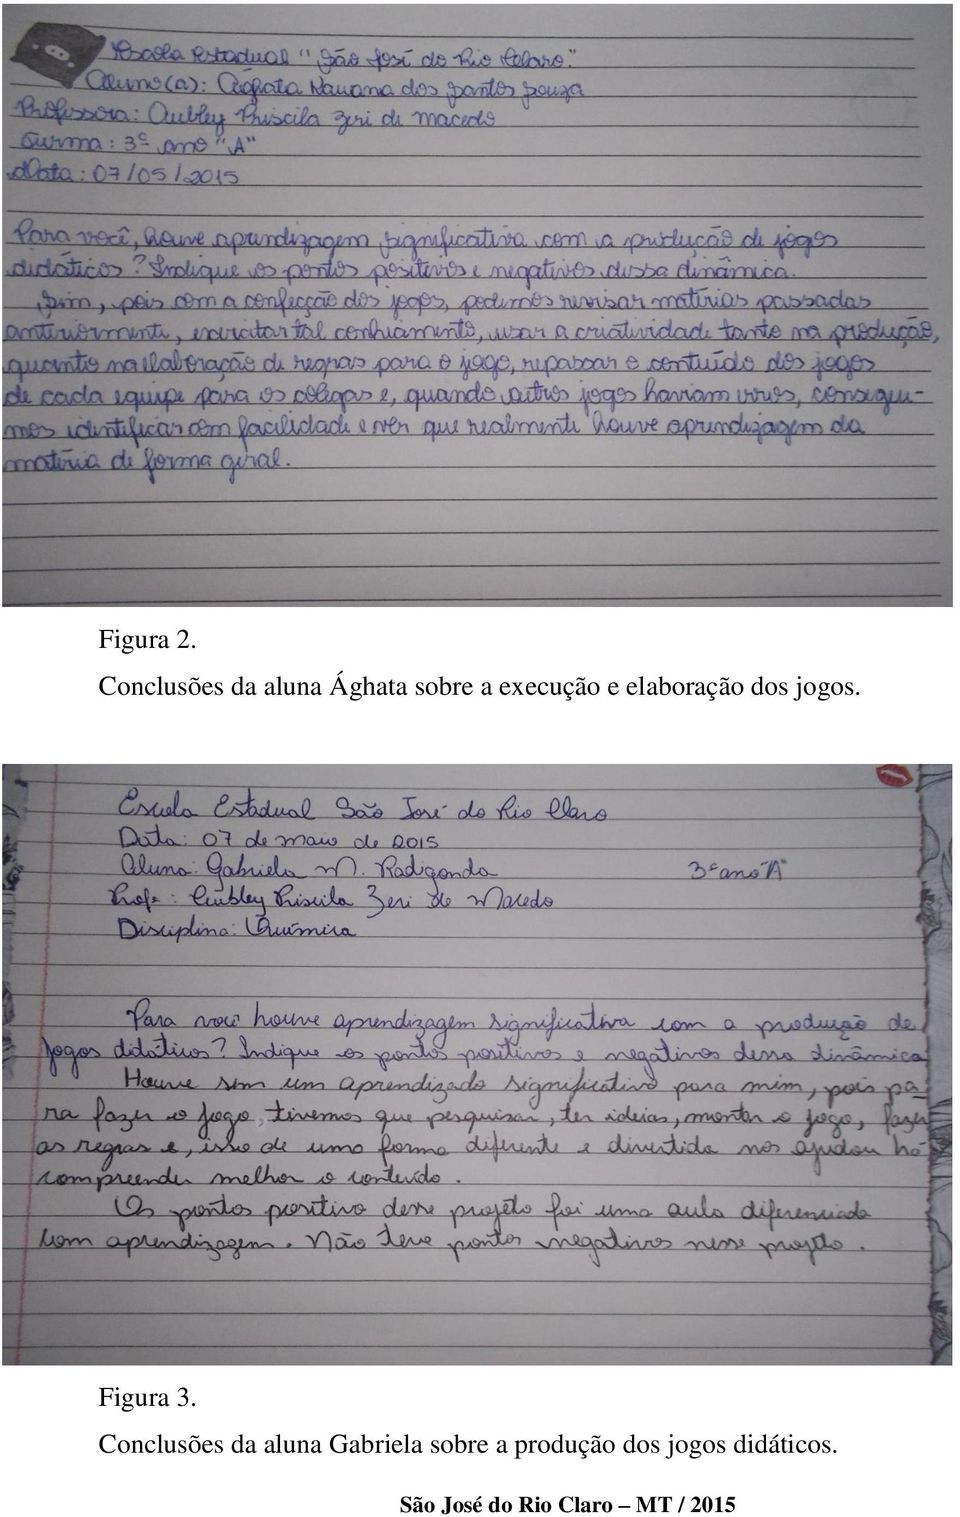 Escola Estadual "São José do Rio Claro."
Aluno(a): Ághata Nauana dos Santos Souza
Professora: Aubley Priscila Zeri de Macedo
Turma: 3º ano "A"
Data: 07/05/2015
Para você, houve aprendizagem significativa com a produção de jogos
didáticos? Indique os pontos positivos e negativos dessa dinâmica.
Sim, pois com a confecção dos jogos, podemos revisar matérias passadas
anteriormente, exercitar tal conhecimento, usar a criatividade tanto na produção,
quanto na elaboração de regras para o jogo, repassar o conteúdo dos jogos
de cada equipe para os colegas e, quando outros jogos haviam erros, consegui-
mos identificar com facilidade e ver que realmente houve aprendizagem da
matéria de forma geral.
Figura 2.
Conclusões da aluna Ághata sobre a execução e elaboração dos jogos.
Escola Estadual São José do Rio Claro
Data: 07 de maio de 2015
Aluna: Gabriela M. Radigonda 3º ano "A"
Profª: Aubley Priscila Zeri de Macedo
Disciplina: Química
Para você houve aprendizagem significativa com a produção de
jogos didáticos? Indique os pontos positivos e negativos dessa dinâmica
Houve sim um aprendizado significativo para mim, pois pa-
ra fazer o jogo, tivemos que pesquisar, ter ideias, montar o jogo, fazer
as regras e, isso de uma forma diferente e divertida nos ajudou há
compreender melhor o conteúdo.
Os pontos positivo desse projeto foi uma aula diferenciada
com aprendizagem. Não teve pontos negativos nesse projeto.
Figura 3.
Conclusões da aluna Gabriela sobre a produção dos jogos didáticos.
São José do Rio Claro – MT / 2015